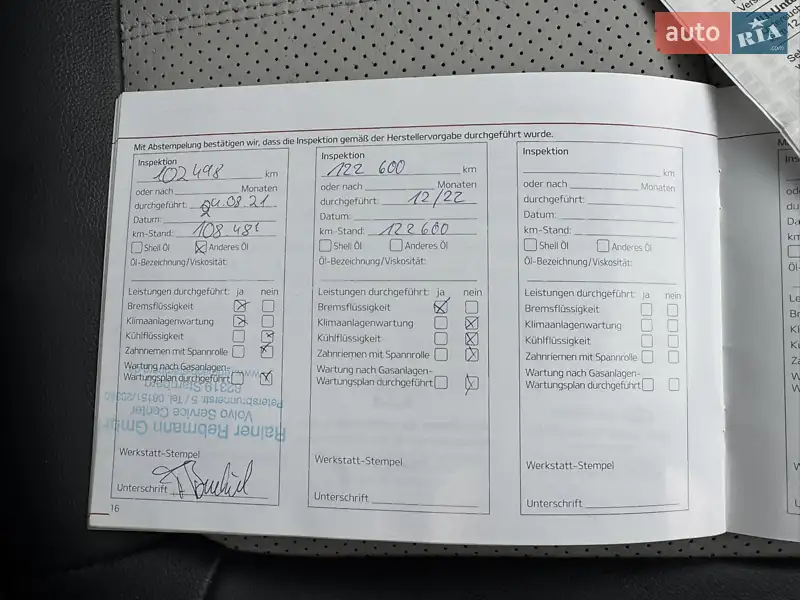 auto RIA.com
Mit Abstempelung bestätigen wir, dass die Inspektion gemäß der Herstellervorgabe durchgeführt wurde.
Inspektion
102 498 km
oder nach Monaten
durchgeführt: 24.08.21
Datum:
km-Stand: 108.481
Shell Öl Anderes Öl
Öl-Bezeichnung/Viskosität:
Leistungen durchgeführt: ja nein
Bremsflüssigkeit
Klimaanlagenwartung
Kühlflüssigkeit
Zahnriemen mit Spannrolle
Wartung nach Gasanlagen-
Wartungsplan durchgeführt
Rainer Rebmann GmbH
Volvo Service Center
Petersbrunnerstr. 5 / Tel. 08151/
82319 Starnberg
Werkstatt-Stempel
Unterschrift
16
Inspektion
122 600 km
oder nach Monaten
durchgeführt: 12/22
Datum:
km-Stand: 122600
Shell Öl Anderes Öl
Öl-Bezeichnung/Viskosität:
Leistungen durchgeführt: ja nein
Bremsflüssigkeit
Klimaanlagenwartung
Kühlflüssigkeit
Zahnriemen mit Spannrolle
Wartung nach Gasanlagen-
Wartungsplan durchgeführt
Werkstatt-Stempel
Unterschrift
Inspektion
km
oder nach Monaten
durchgeführt:
Datum:
km-Stand:
Shell Öl Anderes Öl
Öl-Bezeichnung/Viskosität:
Leistungen durchgeführt: ja nein
Bremsflüssigkeit
Klimaanlagenwartung
Kühlflüssigkeit
Zahnriemen mit Spannrolle
Wartung nach Gasanlagen-
Wartungsplan durchgeführt
Werkstatt-Stempel
Unterschrift